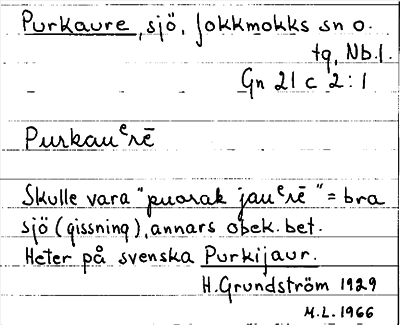 Purkaure, sjö, Jokkmokks sn o.
tg, Nb.l.
Gn 21 c 2:1
Purkauᵉrē
Skulle vara "puorak jauᵉrē" = bra
sjö (gissning), annars obek. bet.
Heter på svenska Purkijaur.
H. Grundström 1929
M.L. 1966